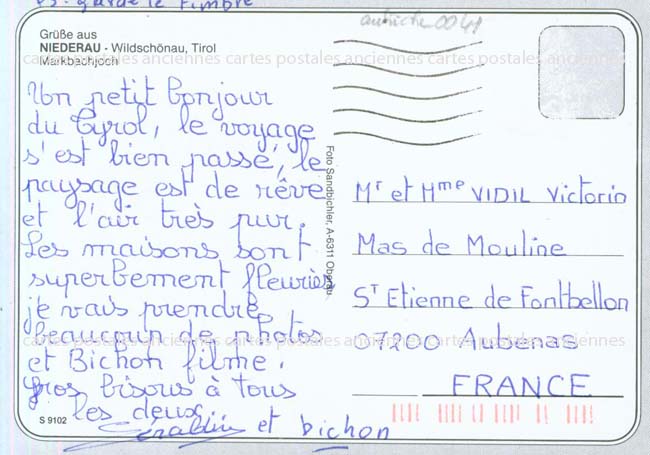 PS. garde le timbre
autriche 0041
Grüße aus
NIEDERAU - Wildschönau, Tirol
Markbachjoch
cartes postales anciennes cartes postales anciennes cartes postales anciennes
Un petit bonjour
du Tyrol, le voyage
s'est bien passé, le
paysage est de rêve
et l'air très pur.
Les maisons sont
superbement fleuries
je vais prendre
beaucoup de photos
et Bichon filme.
gros bisous à tous
les deux.
Géraldine et bichon
S 9102
Foto Sandbichler, A-6311 Oberau
Mr et Mme VIDIL Victorin
Mas de Mouline
ST Etienne de Fontbellon
07200 Aubenas
cartes postales anciennes cartes postales anciennes cartes postales anciennes
FRANCE